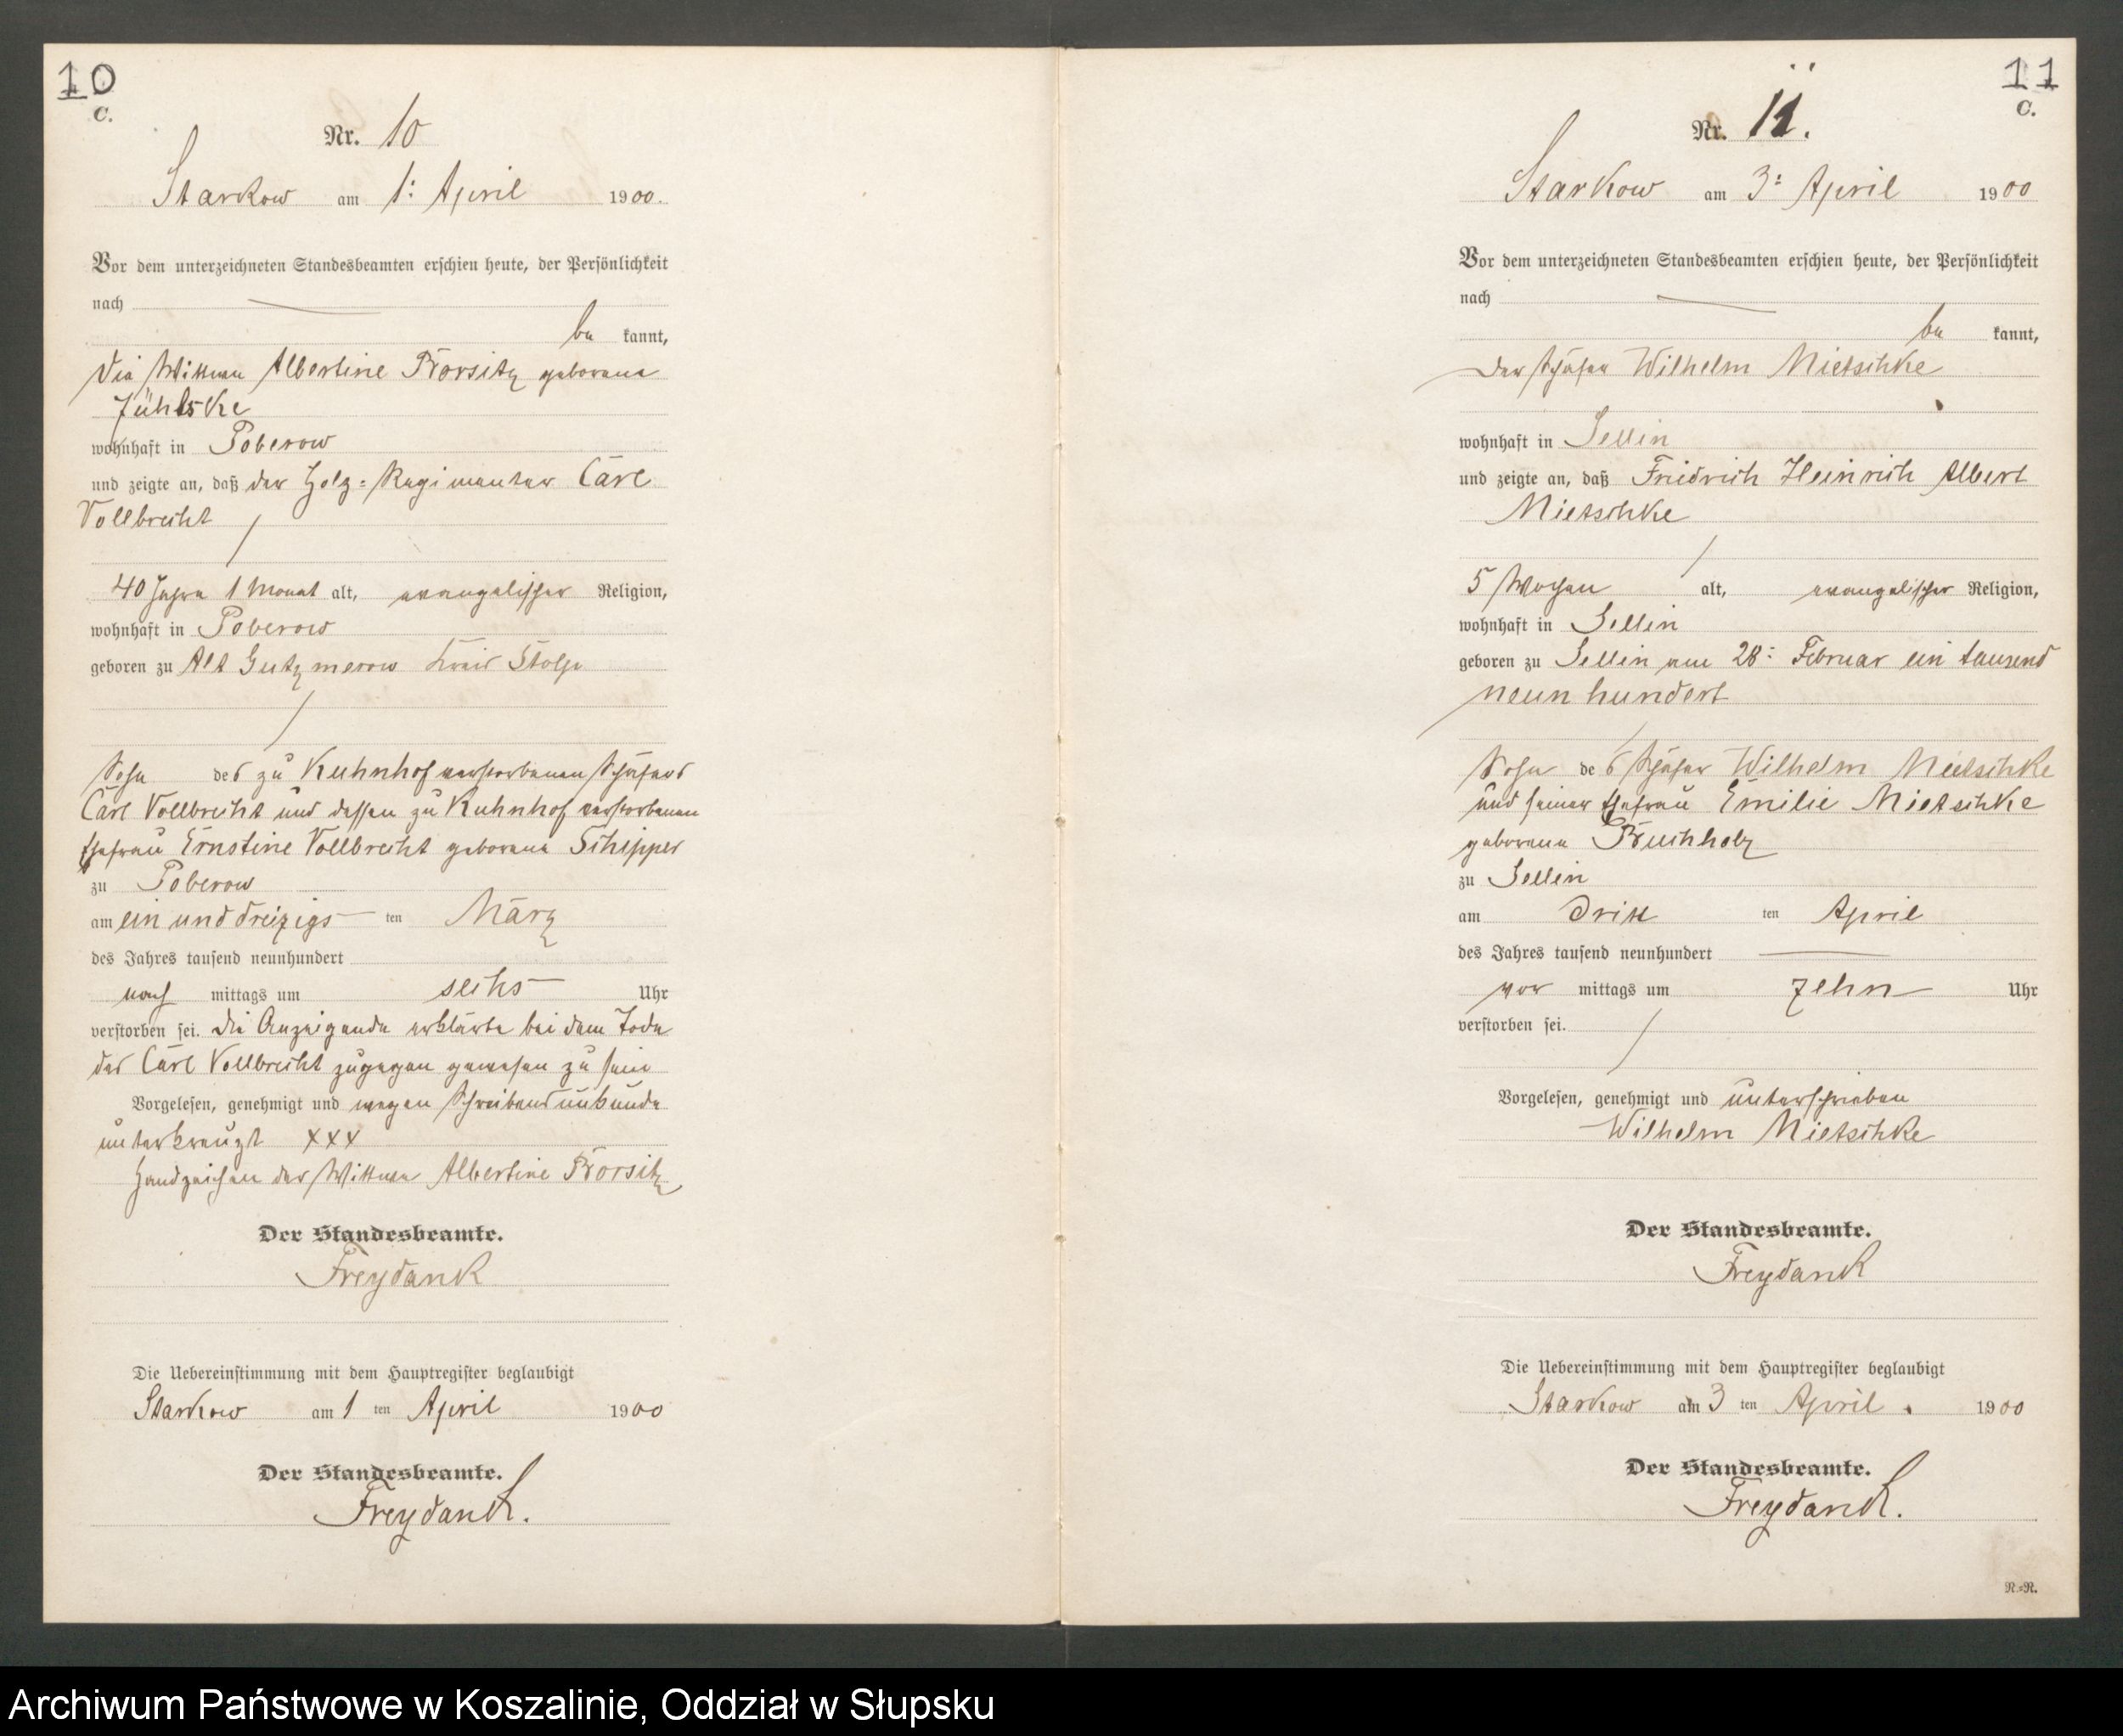 10
C.
Nr. 10
Starkow am 1: April 1900.
Vor dem unterzeichneten Standesbeamten erschien heute, der Persönlichkeit
nach
be kannt,
die Wittwe Albertine Borsitz geborene
wohnhaft in Poberow
und zeigte an, daß der Holz-Regimenter Carl
Vollbrecht
40 Jahre 1 Monat alt, evangelischer Religion,
wohnhaft in Poberow
geboren zu Alt Gutzmerow Kreis Stolp
Sohn des zu Kuhnhof verstorbenen Schäfers
Carl Vollbrecht und dessen zu Kuhnhof verstorbenen
Ehefrau Ernstine Vollbrecht geborene Schipper
zu Poberow
am ein und dreizigs ten März
des Jahres tausend neunhundert
nach mittags um sechs Uhr
verstorben sei. Die Anzeigende erklärte bei dem Tode
des Carl Vollbrecht zugegen gewesen zu sein
Vorgelesen, genehmigt und wegen Schreibensunkunde
unterkreuzt XXX
Handzeichen der Wittwe Albertine Borsitz
Der Standesbeamte.
Freydank
Die Uebereinstimmung mit dem Hauptregister beglaubigt
Starkow am 1 ten April 1900
Der Standesbeamte.
Freydank.
11
C.
Nr. 11.
Starkow am 3: April 1900
Vor dem unterzeichneten Standesbeamten erschien heute, der Persönlichkeit
nach
be kannt,
der Schäfer Wilhelm Mietschke
wohnhaft in Sellin
und zeigte an, daß Friedrich Heinrich Albert
Mietschke
5 Wochen alt, evangelischer Religion,
wohnhaft in Sellin
geboren zu Sellin am 28: Februar ein tausend
neun hundert
Sohn des Schäfer Wilhelm Mietschke
und seiner Ehefrau Emilie Mietschke
geborene Buchholz
zu Sellin
am dritt ten April
des Jahres tausend neunhundert
vor mittags um zehn Uhr
verstorben sei.
Vorgelesen, genehmigt und unterschrieben
Wilhelm Mietschke
Der Standesbeamte.
Freydank
Die Uebereinstimmung mit dem Hauptregister beglaubigt
Starkow am 3 ten April. 1900
Der Standesbeamte.
Freydank.
R.=R.
Archiwum Państwowe w Koszalinie, Oddział w Słupsku